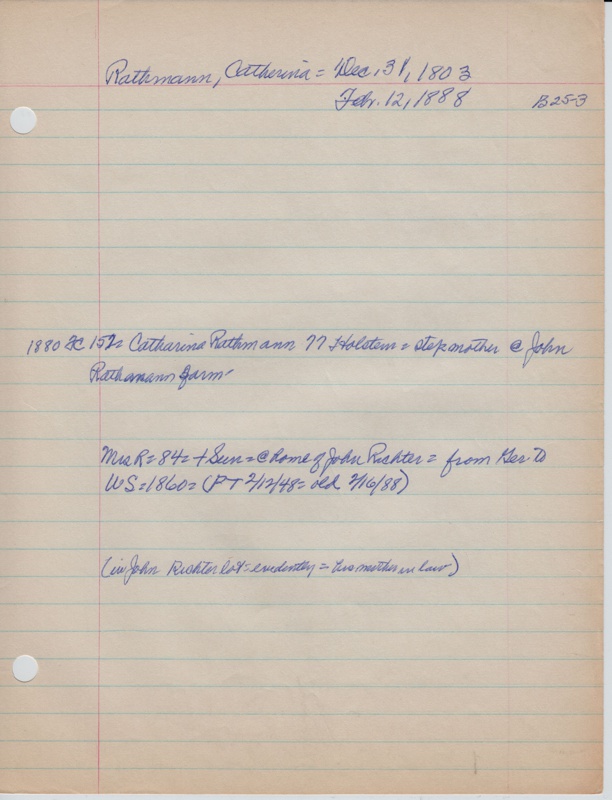 Rathmann, Catherina = Dec. 31, 1803
Feb. 12, 1888 B25-3
1880 152 = Catharina Rathmann 77 Holstein = stepmother @ John
Rathmann farm
Mrs R = 84 = + Sun = @ home of John Richter = from Ger to
US = 1860 = (PT 2/12/48 = old 2/16/88)
(in John Richter lot = evidently = his mother in law)